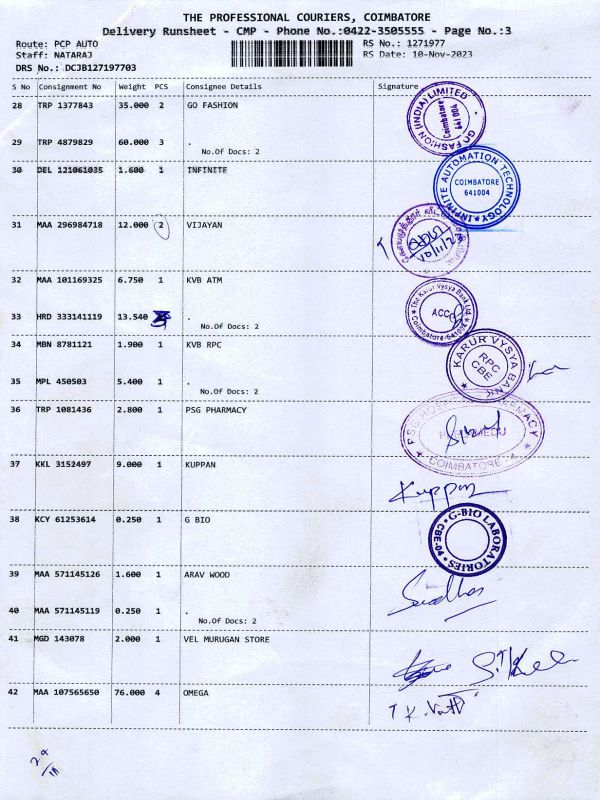 THE PROFESSIONAL COURIERS, COIMBATORE
Delivery Runsheet - CMP - Phone No.:0422-3505555 - Page No.:3
Route: PCP AUTO RS No.: 1271977
Staff: NATARAJ RS Date: 10-Nov-2023
DRS No.: DCJB127197703
S No Consignment No Weight PCS Consignee Details Signature
28 TRP 1377843 35.000 2 GO FASHION
GO FASHION (INDIA) LIMITED
Coimbatore
641 004
29 TRP 4879829 60.000 3 .
No.Of Docs: 2
30 DEL 121061035 1.600 1 INFINITE
INFINITE AUTOMATION TECHNOLOGY
COIMBATORE
641004
31 MAA 296984718 12.000 2 VIJAYAN
32 MAA 101169325 6.750 1 KVB ATM
The Karur Vysya Bank Ltd.
ACC
33 HRD 333141119 13.540 .
No.Of Docs: 2
34 MBN 8781121 1.900 1 KVB RPC
KARUR VYSYA BANK
RPC
CBE
35 MPL 450503 5.400 1 .
No.Of Docs: 2
36 TRP 1081436 2.800 1 PSG PHARMACY
COIMBATORE
37 KKL 3152497 9.000 1 KUPPAN
Kuppan
38 KCY 61253614 0.250 1 G BIO
G-BIO LABORATORIES
39 MAA 571145126 1.600 1 ARAV WOOD
40 MAA 571145119 0.250 1 .
No.Of Docs: 2
41 MGD 143078 2.000 1 VEL MURUGAN STORE
42 MAA 107565650 76.000 4 OMEGA